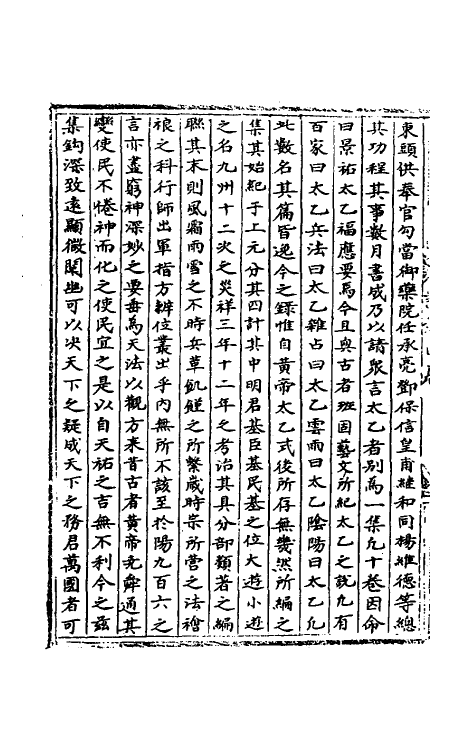 東頭供奉官勾當御藥院任承亮鄧保信皇甫繼和同楊維德等總
其功程其事數月書成乃以諸衆言太乙者别為一集九十卷因命
曰景祐太乙福應要焉今且與古者班固藝文所紀太乙之說九有
百家曰太乙兵法曰太乙雜占曰太乙雲雨曰太乙隂陽曰太乙九
此數名其篇皆逸今之録惟自黄帝太乙式後所存無幾然所編之
集其始紀于上元分其四計其中明君基臣基民基之位大遊小遊
之名九州十二次之災祥三年十二年之考治其具分部類著之編
聯其末則風霜雨雪之不時兵草飢饉之所繫歲時祟所營之法禬
禳之科行師出軍指方辦位叢出乎内無所不該至於陽九百六之
言亦盡窮神深妙之要毎為天法以觀方来昔古者黄帝尭舜通其
變使民不惓神而化之使民宜之是以自天祐之吉無不利今之兹
集鈎深致逺顯微闡幽可以决天下之疑成天下之務君萬國者可